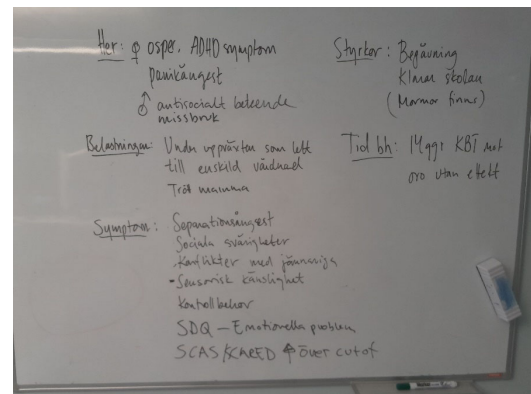 Her: ♀ ospec. ADHD symptom
panikångest
♂ antisocialt beteende
missbruk
Belastningar: Under uppväxten som lett
till enskild vårdnad
Trött mamma
Symptom: Separationsångest
Sociala svårigheter
Konflikter med jämnåriga
- Sensorisk känslighet
Kontrollbehov
SDQ – Emotionella problem
SCAS/SCARED ↑ över cutof
Styrkor: Begåvning
Klarar skolan
(Mormor finns)
Tid bh: 14 ggr KBT mot
oro utan effekt